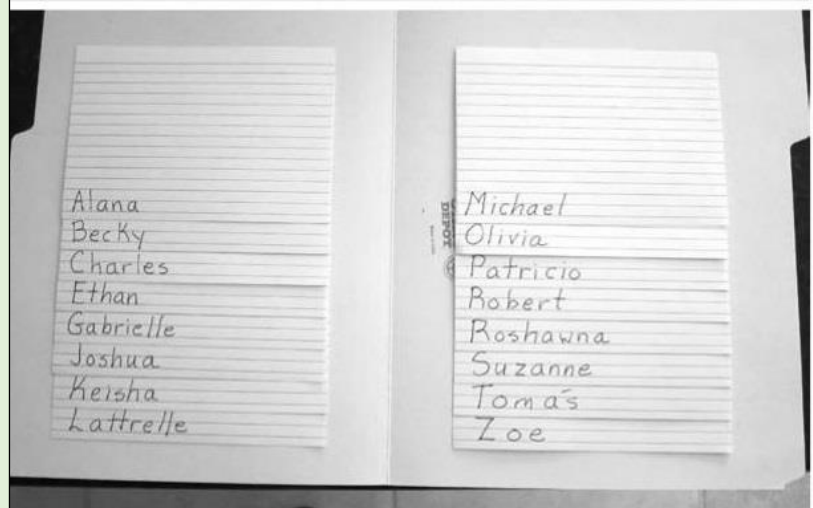 Alana
Becky
Charles
Ethan
Gabrielle
Joshua
Keisha
Lattrelle
Michael
Olivia
Patricio
Robert
Roshawna
Suzanne
Tomás
Zoe
DEPOT